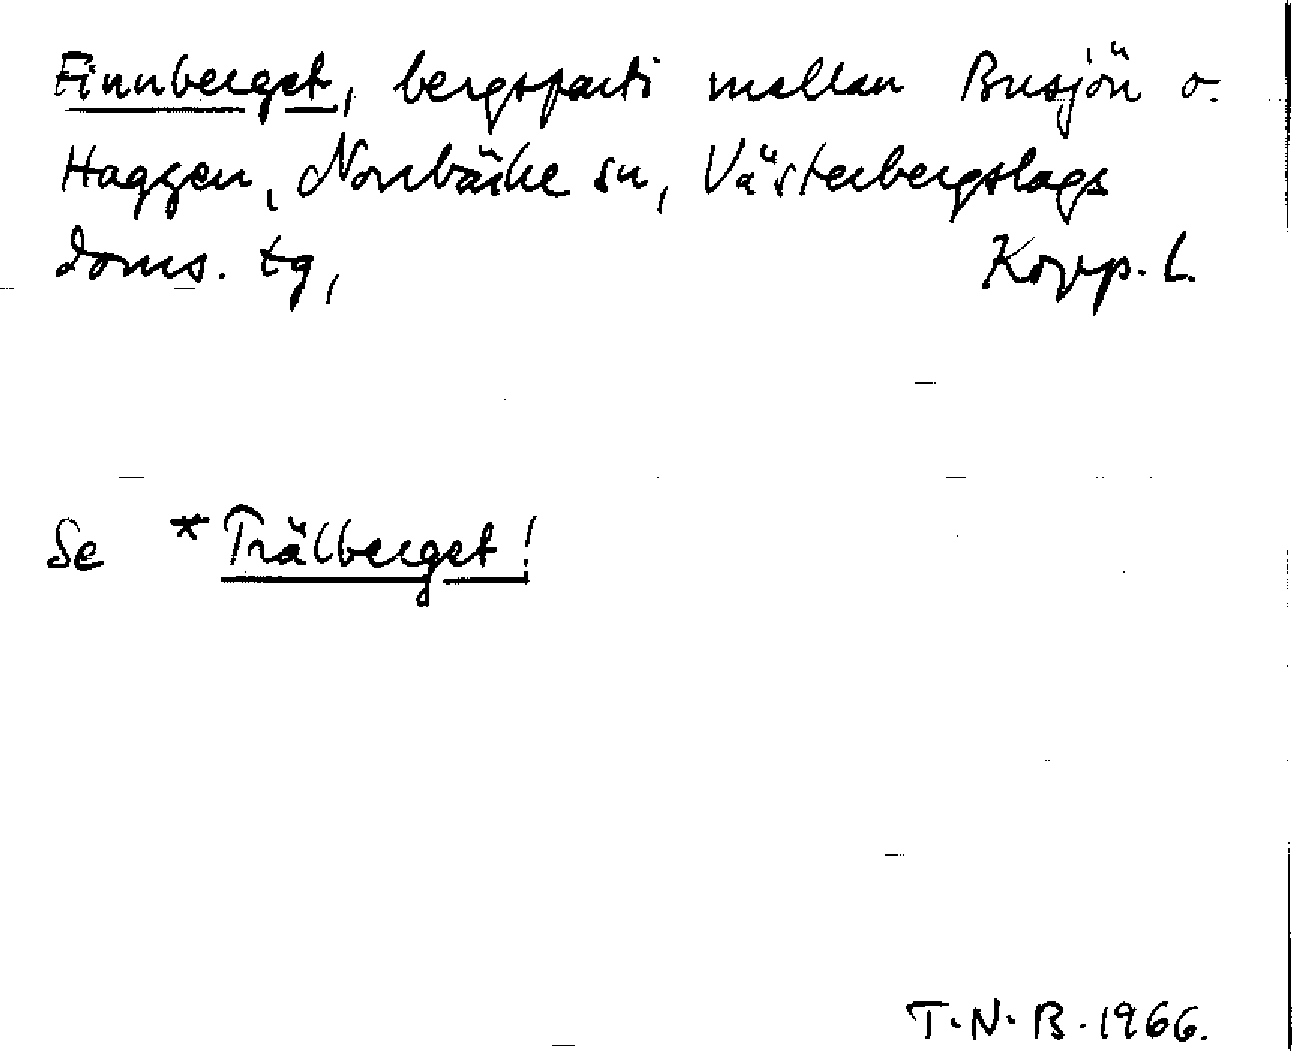 Finnberget, bergsparti mellan Busjön o.
Haggen, Norrbärke sn, Västerbergslags
doms. tg, Kopp. l.
Se *Trälberget!
T.N.B. 1966.